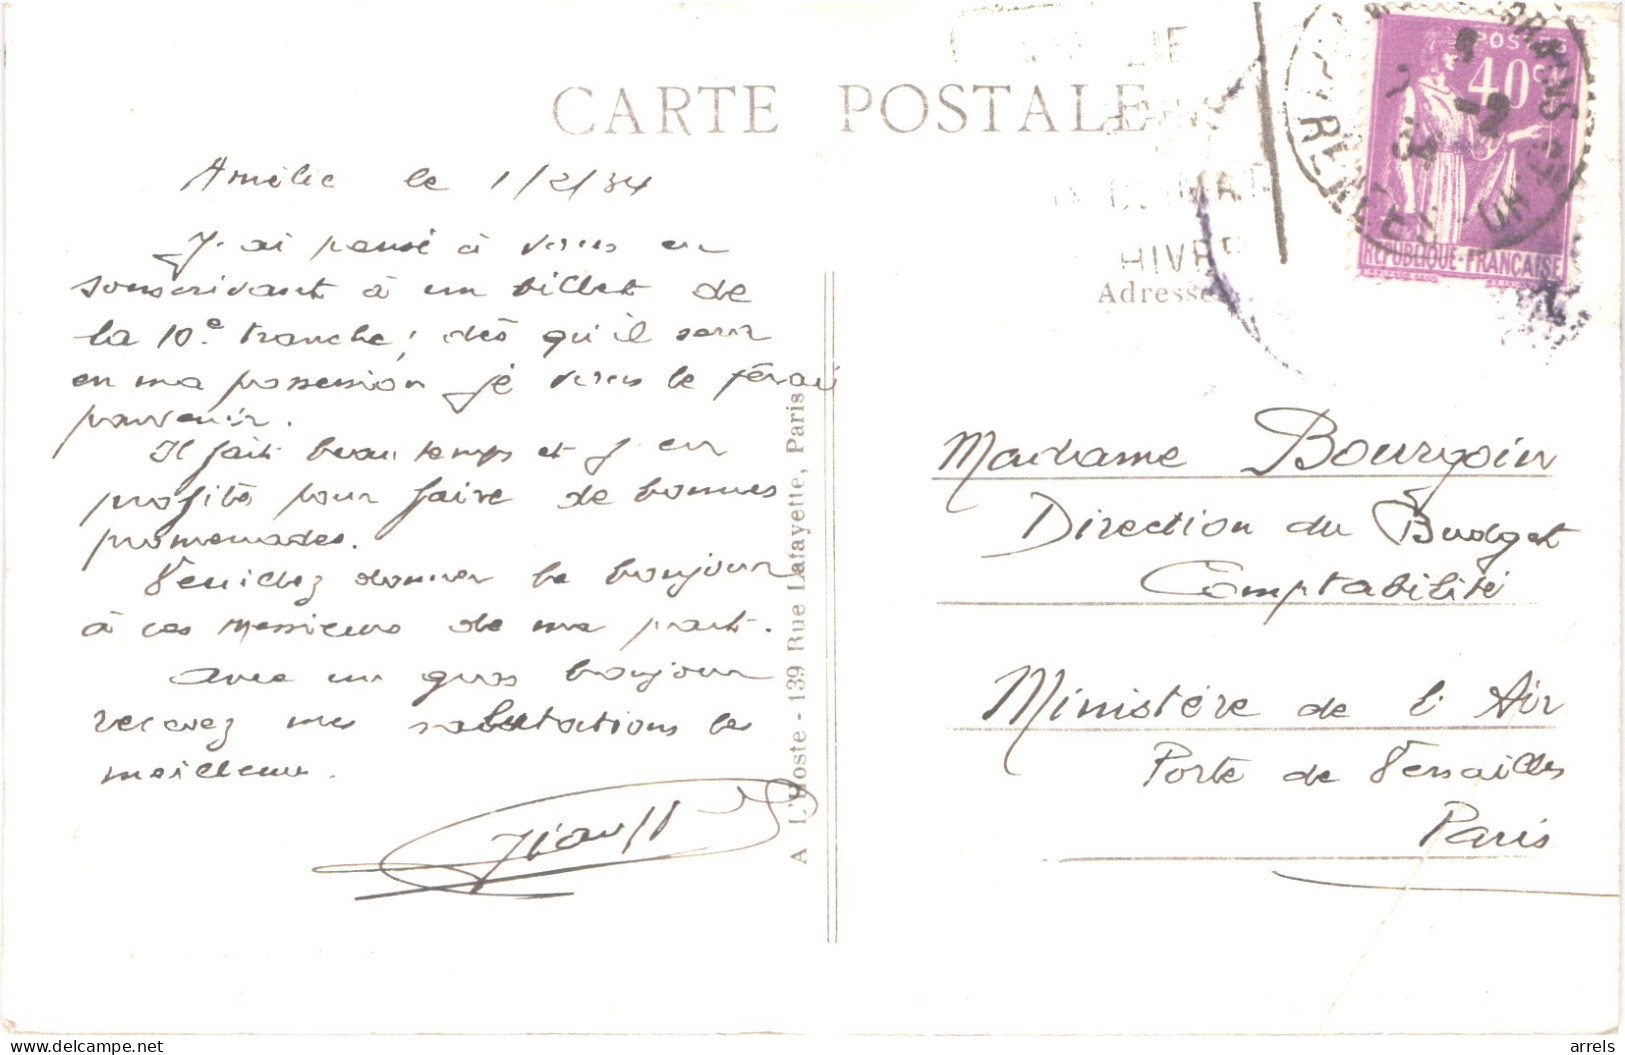 CARTE POSTALE
Amélie le 1/2/34
J'ai pensé à vous en
souscrivant à un billet de
la 10e tranche; dès qu'il sera
en ma possession je vous le ferai
parvenir.
Il fait beau temps et j'en
profite pour faire de bonnes
promenades.
Veuillez donner le bonjour
à ces Messieurs de ma part.
Avec un gros bonjour
recevez mes salutations les
meilleures.
A L'Hoste - 139 Rue Lafayette, Paris
POSTES
40c
REPUBLIQUE-FRANÇAISE
HIVER
Adresse
Madame Bourgoin
Direction du Budget
Comptabilité
Ministère de l'Air
Porte de Versailles
Paris
arrels